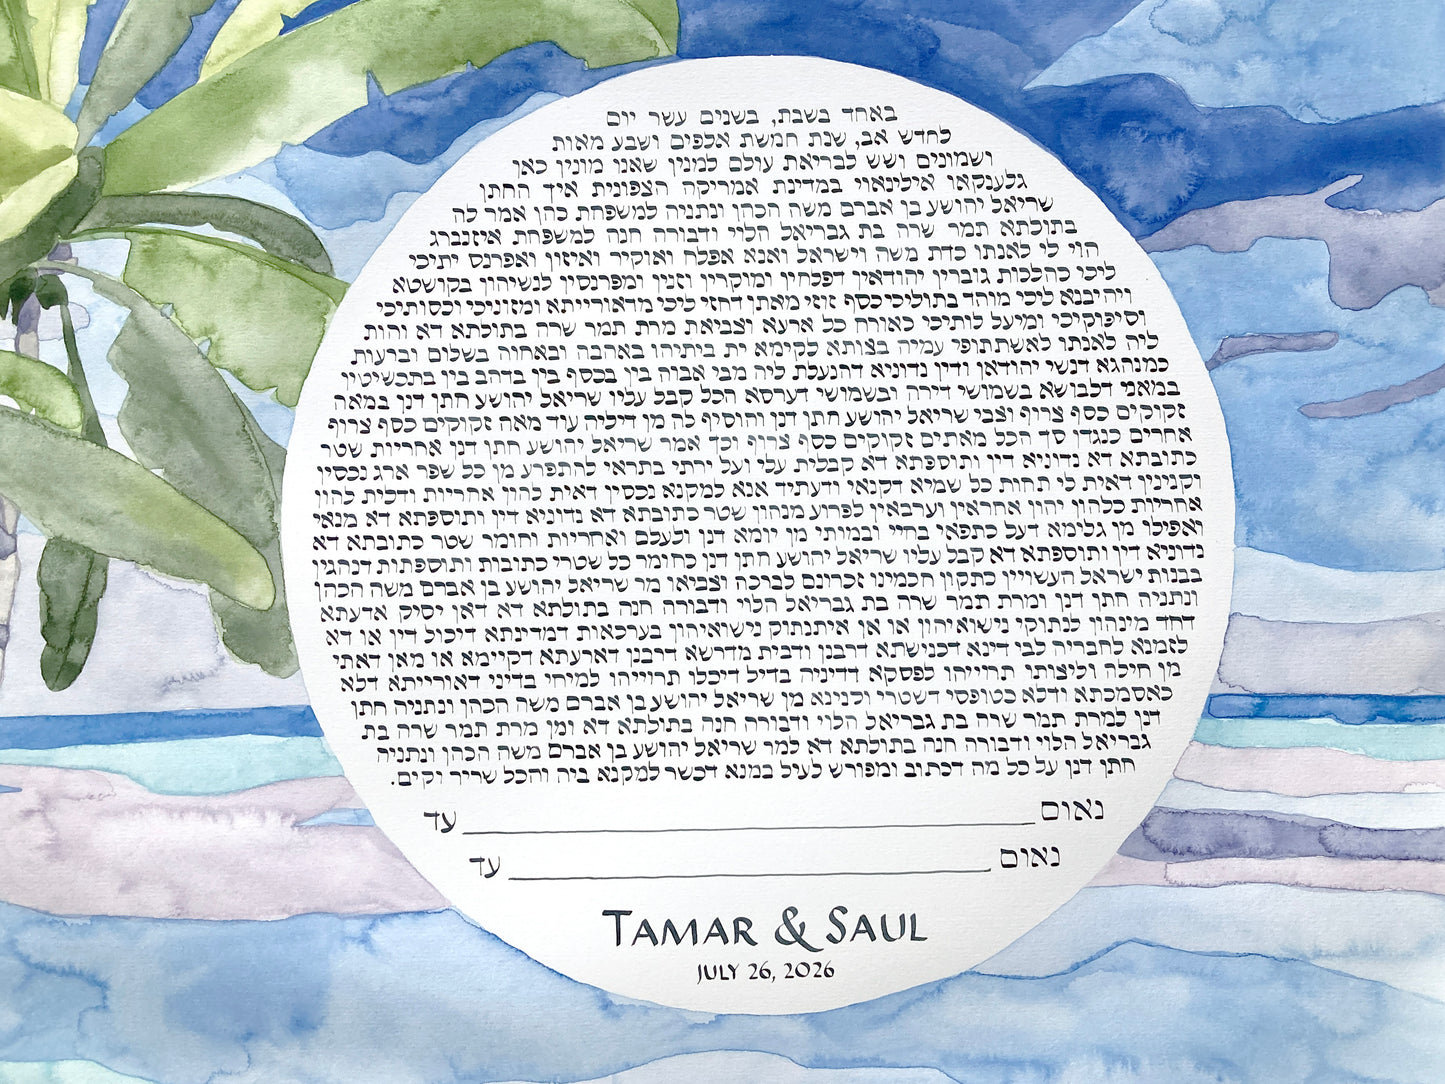 באחד בשבת, בשנים עשר יום
לחדש אב, שנת חמשת אלפים ושבע מאות
ושמונים ושש לבריאת עולם למנין שאנו מונין כאן
גלענקאו אילינאוי במדינת אמריקה הצפונית איך החתן
שריאל יהושע בן אברם משה הכהן ונתניה למשפחת כהן אמר לה
בתולתא תמר שרה בת גבריאל הלוי ודבורה חנה למשפחת איזנברג
הוי לי לאנתו כדת משה וישראל ואנא אפלח ואוקיר ואיזון ואפרנס יתיכי
ליכי כהלכות גוברין יהודאין דפלחין ומוקרין וזנין ומפרנסין לנשיהון בקושטא
ויהיבנא ליכי מוהר בתוליכי כסף זוזי מאתן דחזי ליכי מדאורייתא ומזוניכי וכסותיכי
וסיפוקיכי ומיעל לותיכי כאורח כל ארעא וצביאת מרת תמר שרה בתולתא דא והות
ליה לאנתו לאשתתופי עמיה בצותא לקימא ית ביתיהו באהבה ובאחוה בשלום ובריעות
כמנהגא דנשי יהודאן ודין נדוניא דהנעלת ליה מבי אבוה בין בכסף בין בדהב בין בתכשיטין
במאני דלבושא בשמושי דירה ובשמושי דערסא הכל קבל עליו שריאל יהושע חתן דנן במאה
זקוקים כסף צרוף וצבי שריאל יהושע חתן דנן והוסיף לה מן דיליה עוד מאה זקוקים כסף צרוף
אחרים כנגדן סך הכל מאתים זקוקים כסף צרוף וכך אמר שריאל יהושע חתן דנן אחריות שטר
כתובתא דא נדוניא דין ותוספתא דא קבלית עלי ועל ירתי בתראי להתפרע מן כל שפר ארג נכסין
וקנינין דאית לי תחות כל שמיא דקנאי ודעתיד אנא למקנא נכסין דאית להון אחריות ודלית להון
אחריות כלהון יהון אחראין וערבאין לפרוע מנהון שטר כתובתא דא נדוניא דין ותוספתא דא מנאי
ואפילו מן גלימא דעל כתפאי בחיי ובמותי מן יומא דנן ולעלם ואחריות וחומר שטר כתובתא דא
נדוניא דין ותוספתא דא קבל עליו שריאל יהושע חתן דנן כחומר כל שטרי כתובות ותוספתות דנהגין
בבנות ישראל העשויין כתקון חכמינו זכרונם לברכה וצביאו מר שריאל יהושע בן אברם משה הכהן
ונתניה חתן דנן ומרת תמר שרה בת גבריאל הלוי ודבורה חנה בתולתא דא דאן יסיק אדעתא
דחד מינהון לנתוקי נישואיהון או אן איתנתוק נישואיהון בערכאות דמדינתא דיכול דין או דא
לזמנא לחבריה לבי דינא דכנישתא דרבנן ודבית מדרשא דרבנן דארעתא דקיימא או מאן דאתי
מן חילה וליצותו תרוייהו לפסקא דדיניה בדיל דיכלו תרוייהו למיחי בדיני דאורייתא דלא
כאסמכתא ודלא כטופסי דשטרי וקנינא מן שריאל יהושע בן אברם משה הכהן ונתניה חתן
דנן למרת תמר שרה בת גבריאל הלוי ודבורה חנה בתולתא דא ומן מרת תמר שרה בת
גבריאל הלוי ודבורה חנה בתולתא דא למר שריאל יהושע בן אברם משה הכהן ונתניה
חתן דנן על כל מה דכתוב ומפורש לעיל במנא דכשר למקנא ביה והכל שריר וקים.
נאום עד
נאום עד
TAMAR & SAUL
JULY 26, 2026